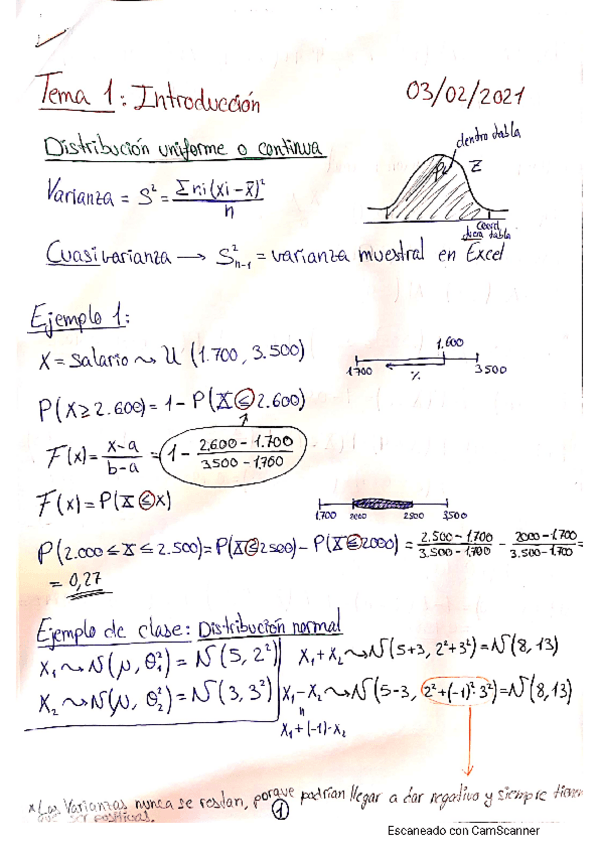 Tema 1: Introducción
03/02/2021
Distribución uniforme o continua
dentro tabla
Z
Varianza = S² = Σni(xi - x̄)² / n
Coord.
fuera tabla
Cuasivarianza → S²n-1 = varianza muestral en Excel
Ejemplo 1:
X = salario ~ U (1.700, 3.500)
1.600
1700
%
3500
P(X ≥ 2.600) = 1 - P(X ≤ 2.600)
F(x) = x-a / b-a = 1 - 2.600 - 1.700 / 3.500 - 1.700
F(x) = P(X ≤ x)
1.700 2000 2500 3,500
P(2.000 ≤ X ≤ 2.500) = P(X ≤ 2500) - P(X ≤ 2000) = 2.500 - 1.700 / 3.500 - 1.700 - 2000 - 1.700 / 3.500 - 1.700 =
= 0,27
Ejemplo de clase: Distribución normal
X₁ ~ N(μ, θ₁²) = N(5, 2²)
X₁ + X₂ ~ N(5+3, 2²+3²) = N(8, 13)
X₂ ~ N(μ, θ₂²) = N(3, 3²)
X₁ - X₂ ~ N(5-3, 2²+(-1)²·3²) = N(8, 13)
X₁ + (-1)·X₂
* Las Varianzas nunca se restan, porque podrían llegar a dar negativo y siempre tienen
que ser positivas.
1
Escaneado con CamScanner